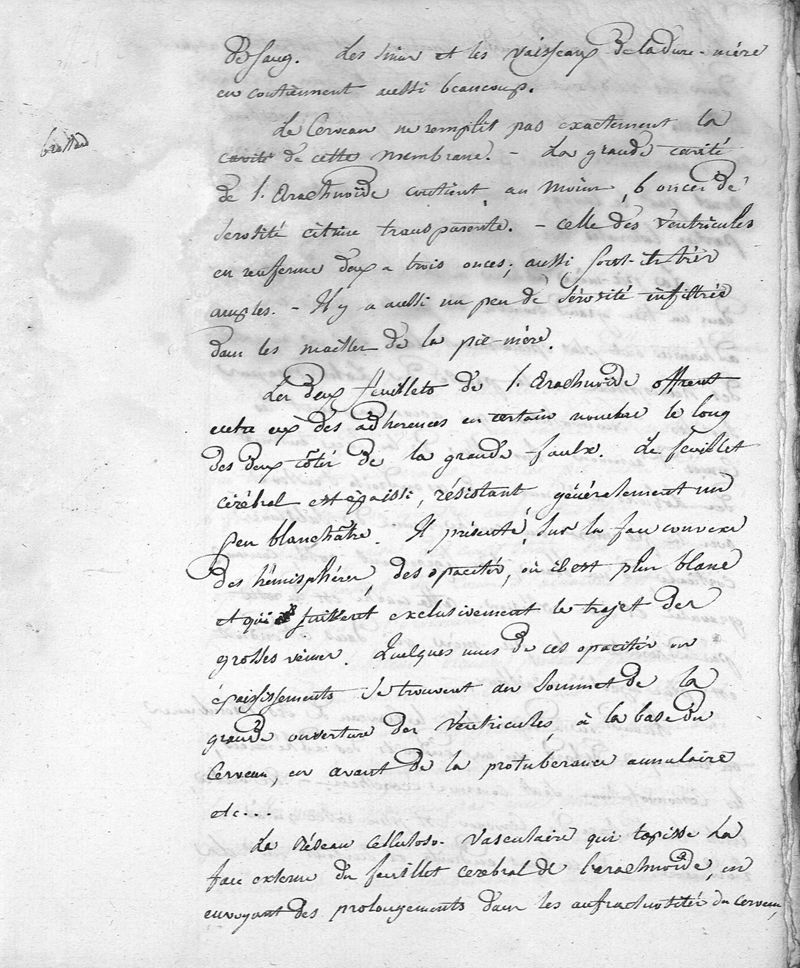 de sang. Les sinus et les vaisseaux de la dure-mère
en contiennent aussi beaucoup.
Le Cerveau ne remplit pas exactement la
cavité de cette membrane. - La grande cavité
de l'Arachnoïde contient, au moins, 6 onces de
sérosité citrine transparente. - celle des ventricules
en renferme deux a trois onces; aussi sont-ils très
amples. - Il y a aussi un peu de sérosité infiltrée
dans les mailles de la pie-mère.
Les deux feuillets de l'Arachnoïde offrent
entre eux des adhérences en certain nombre le long
des deux côtés de la grande faulx. Le feuillet
cérébral est épaissi, résistant généralement un
peu blanchâtre. Il présente, sur la face convexe
des hémisphères, des opacités, où il est plus blanc
et qui suivent exclusivement le trajet des
grosses veines. Quelques unes de ces opacités ou
épaississements se trouvent au sommet de la
grande ouverture des ventricules, à la base du
Cerveau, en avant de la protubérance annulaire
etc...
Le Réseau celluloso-vasculaire qui tapisse la
face externe du feuillet cérébral de l'arachnoïde, en
envoyant des prolongements dans les anfractuosités du cerveau,